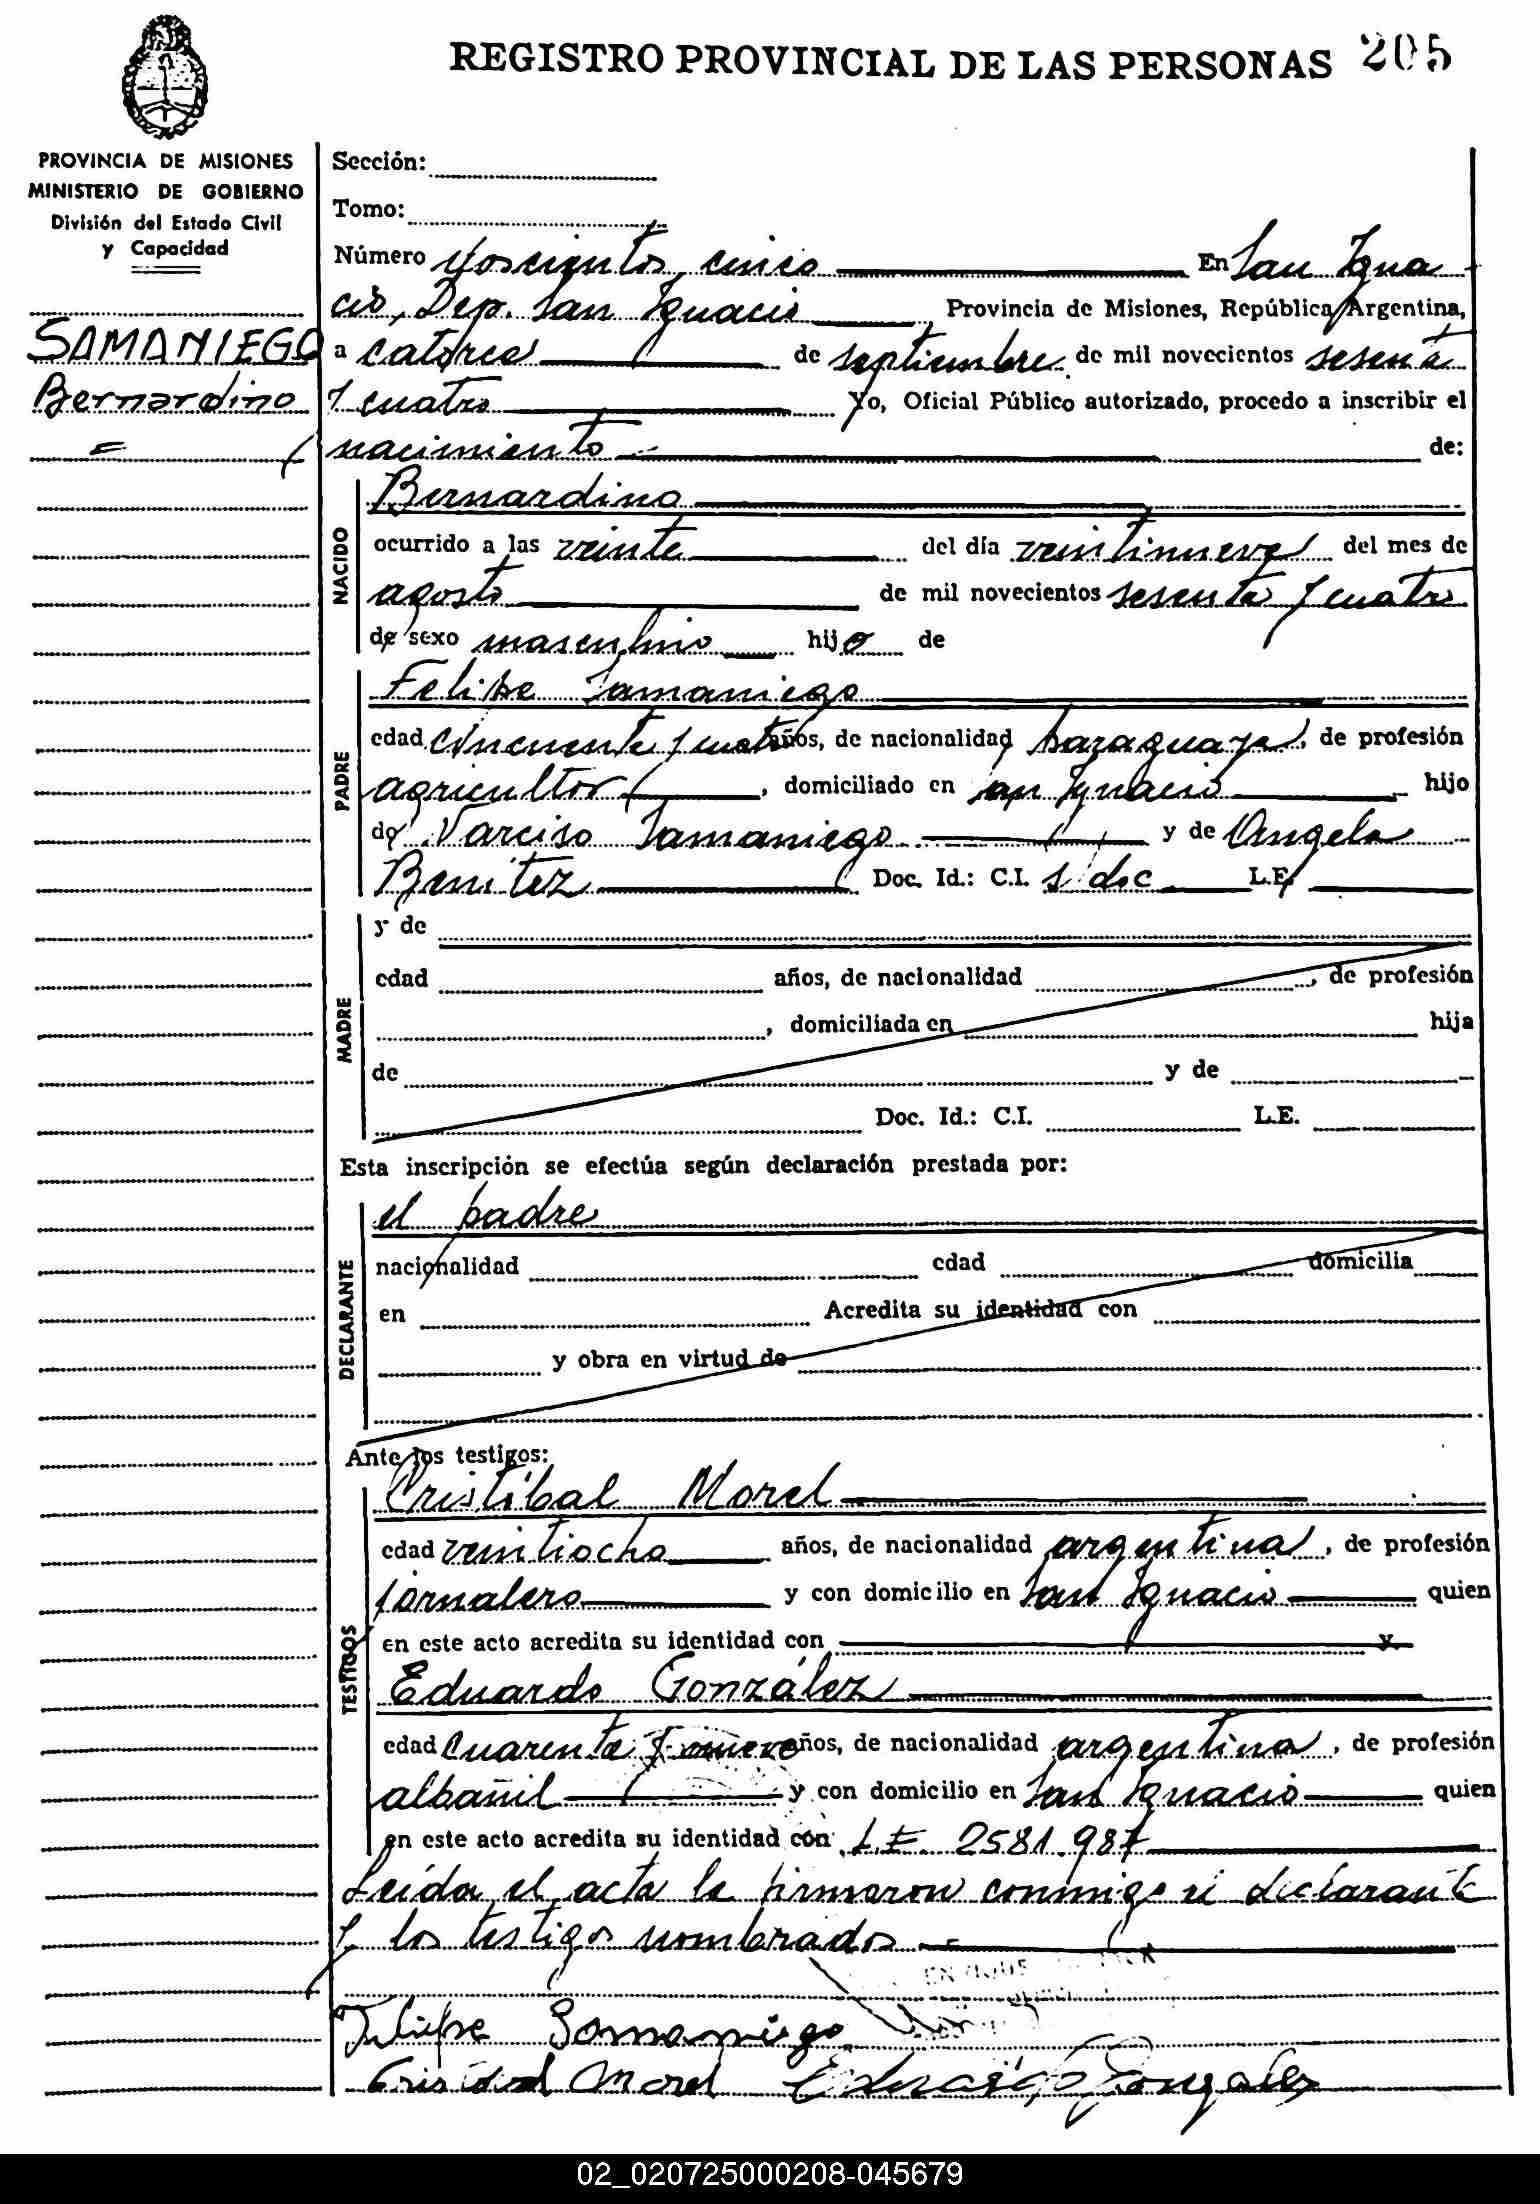 REGISTRO PROVINCIAL DE LAS PERSONAS 205
PROVINCIA DE MISIONES
MINISTERIO DE GOBIERNO
División del Estado Civil
y Capacidad
SAMANIEGO
Bernardino
=
Sección:
Tomo:
Número doscientos cinco En San Igna
cio, Dep. San Ignacio Provincia de Misiones, República Argentina,
a catorce de septiembre de mil novecientos sesenta
y cuatro Yo, Oficial Público autorizado, procedo a inscribir el
nacimiento de:
NACIDO
Bernardino
ocurrido a las veinte del día veintinueve del mes de
agosto de mil novecientos sesenta y cuatro
de sexo masculino hijo de
PADRE
Felipe Samaniego
edad cincuenta y cuatro años, de nacionalidad paraguaya, de profesión
agricultor, domiciliado en San Ignacio hijo
de Narciso Samaniego y de Angela
Benítez Doc. Id.: C.I. s/doc L.E.
MADRE
y de
edad años, de nacionalidad , de profesión
, domiciliada en hija
de y de
Doc. Id.: C.I. L.E.
Esta inscripción se efectúa según declaración prestada por:
DECLARANTE
el padre
nacionalidad edad domicilia
en Acredita su identidad con
y obra en virtud de
Ante los testigos:
TESTIGOS
Cristóbal Morel
edad veintiocho años, de nacionalidad argentina, de profesión
jornalero y con domicilio en San Ignacio quien
en este acto acredita su identidad con y
Eduardo González
edad cuarenta y nueve años, de nacionalidad argentina, de profesión
albañil y con domicilio en San Ignacio quien
en este acto acredita su identidad con L.E. 2581.987
Leída el acta la firmaron conmigo el declarante
y los testigos nombrados
Felipe Samaniego
Cristobal Morel Eduardo Gonzalez
02_020725000208-045679